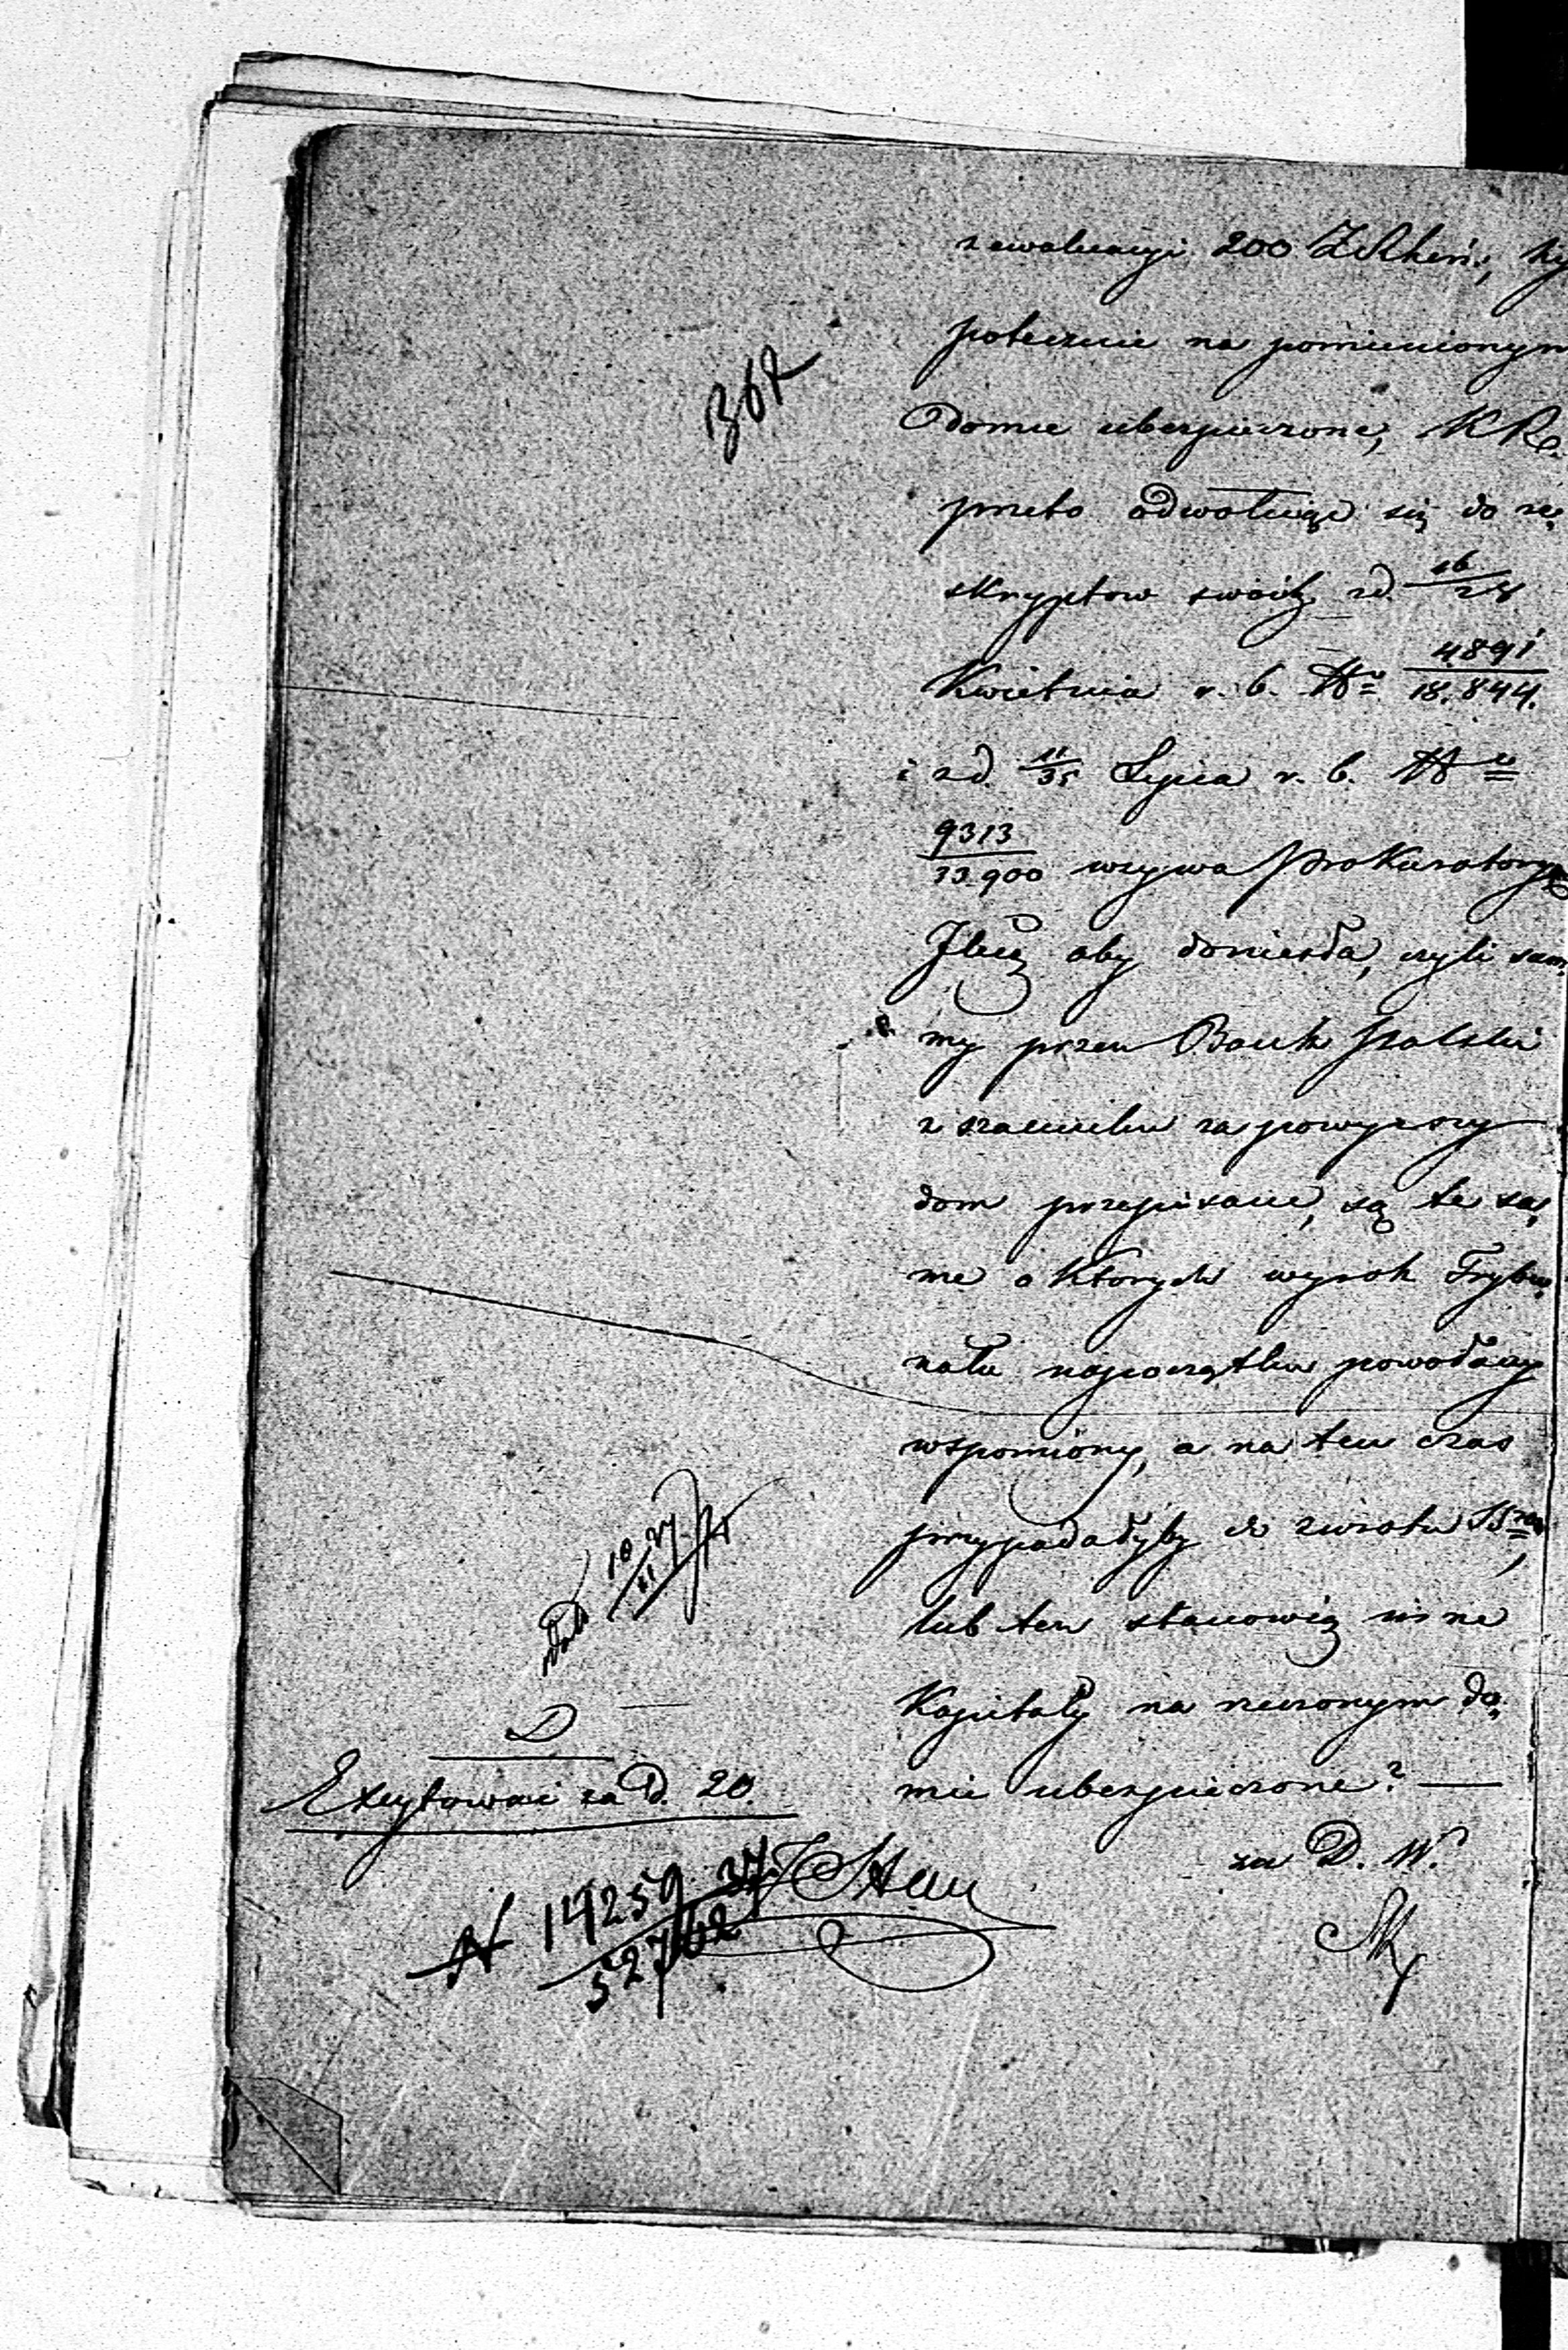 z ewaluacyi 200 Zł Reń:, hy
potecznie na pomienionym
domie ubezpieczone, KR
przeto odwołując się do re,
skryptow swoich zd. 16/28
Kwietnia r. b. No 4891/18.844.
i zd. Lipca r. b. No
9313/33.900 wzywa Prokuratoryą
Jlną aby doniosła, czyli sum,
my przez Bank Polski
z szacunku za powyższy
dom przepisane, są te sa,
me o ktorych wyrok Trybu,
nału napoczątku powołany
wspomiony, a na ten czas
przypadałyby do zwrotu
lub też stanowią inne
Kapitały na rzeczonym do,
mie ubezpieczone? —
za D. W.
362
D
Excytować za d. 20
N 14259/52762 37